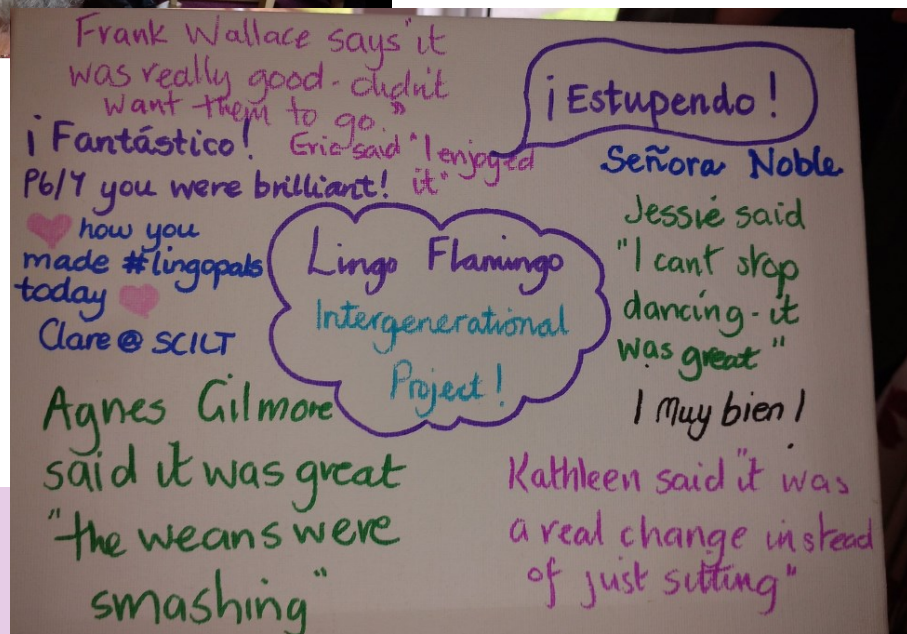 Frank Wallace says "it
was really good - didn't
want them to go."
¡Estupendo!
Señora Noble
¡Fantástico!
Eric said "I enjoyed
it"
P6/7 you were brilliant!
how you
made #lingopals
today
Clare @ SCILT
Lingo Flamingo
Intergenerational
Project!
Jessie said
"I cant stop
dancing - it
was great"
¡Muy bien!
Agnes Gilmore
said it was great
"the weans were
smashing"
Kathleen said "it was
a real change instead
of just sitting"